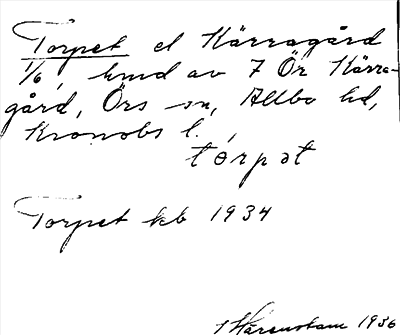 Torpet el Kärragård
1/6, hmd av 7 Ör Kärra-
gård, Örs sn, Allbo hd,
Kronobs l.
tórpət
Torpet kb 1934
Härenstam 1936